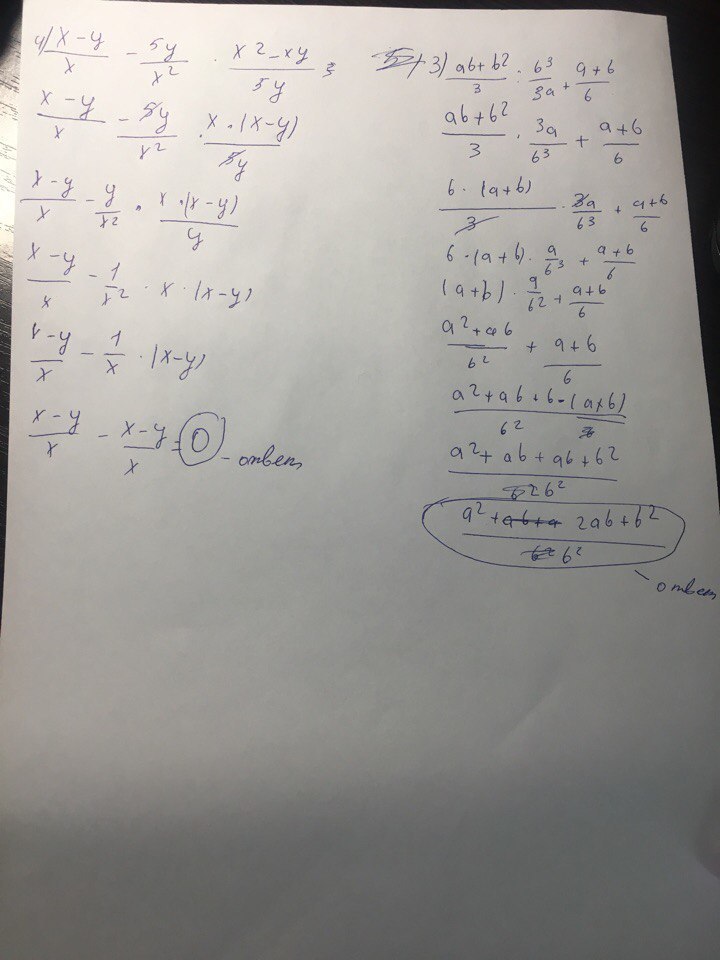 4) (x-y)/x - 5y/x² · (x²-xy)/5y =
(x-y)/x - 5y/x² · x·(x-y)/5y
(x-y)/x - y/x² · x·(x-y)/y
(x-y)/x - 1/x² · x · (x-y)
(x-y)/x - 1/x · (x-y)
(x-y)/x - (x-y)/x = 0 - ответ
3) (ab+b²)/3 : b³/3a + (a+b)/b
(ab+b²)/3 · 3a/b³ + (a+b)/b
b·(a+b)/3 · 3a/b³ + (a+b)/b
b·(a+b)· a/b³ + (a+b)/b
(a+b) · a/b² + (a+b)/b
(a²+ab)/b² + (a+b)/b
(a²+ab+b·(a+b))/b²
(a²+ab+ab+b²)/b²
(a²+2ab+b²)/b²
- ответ